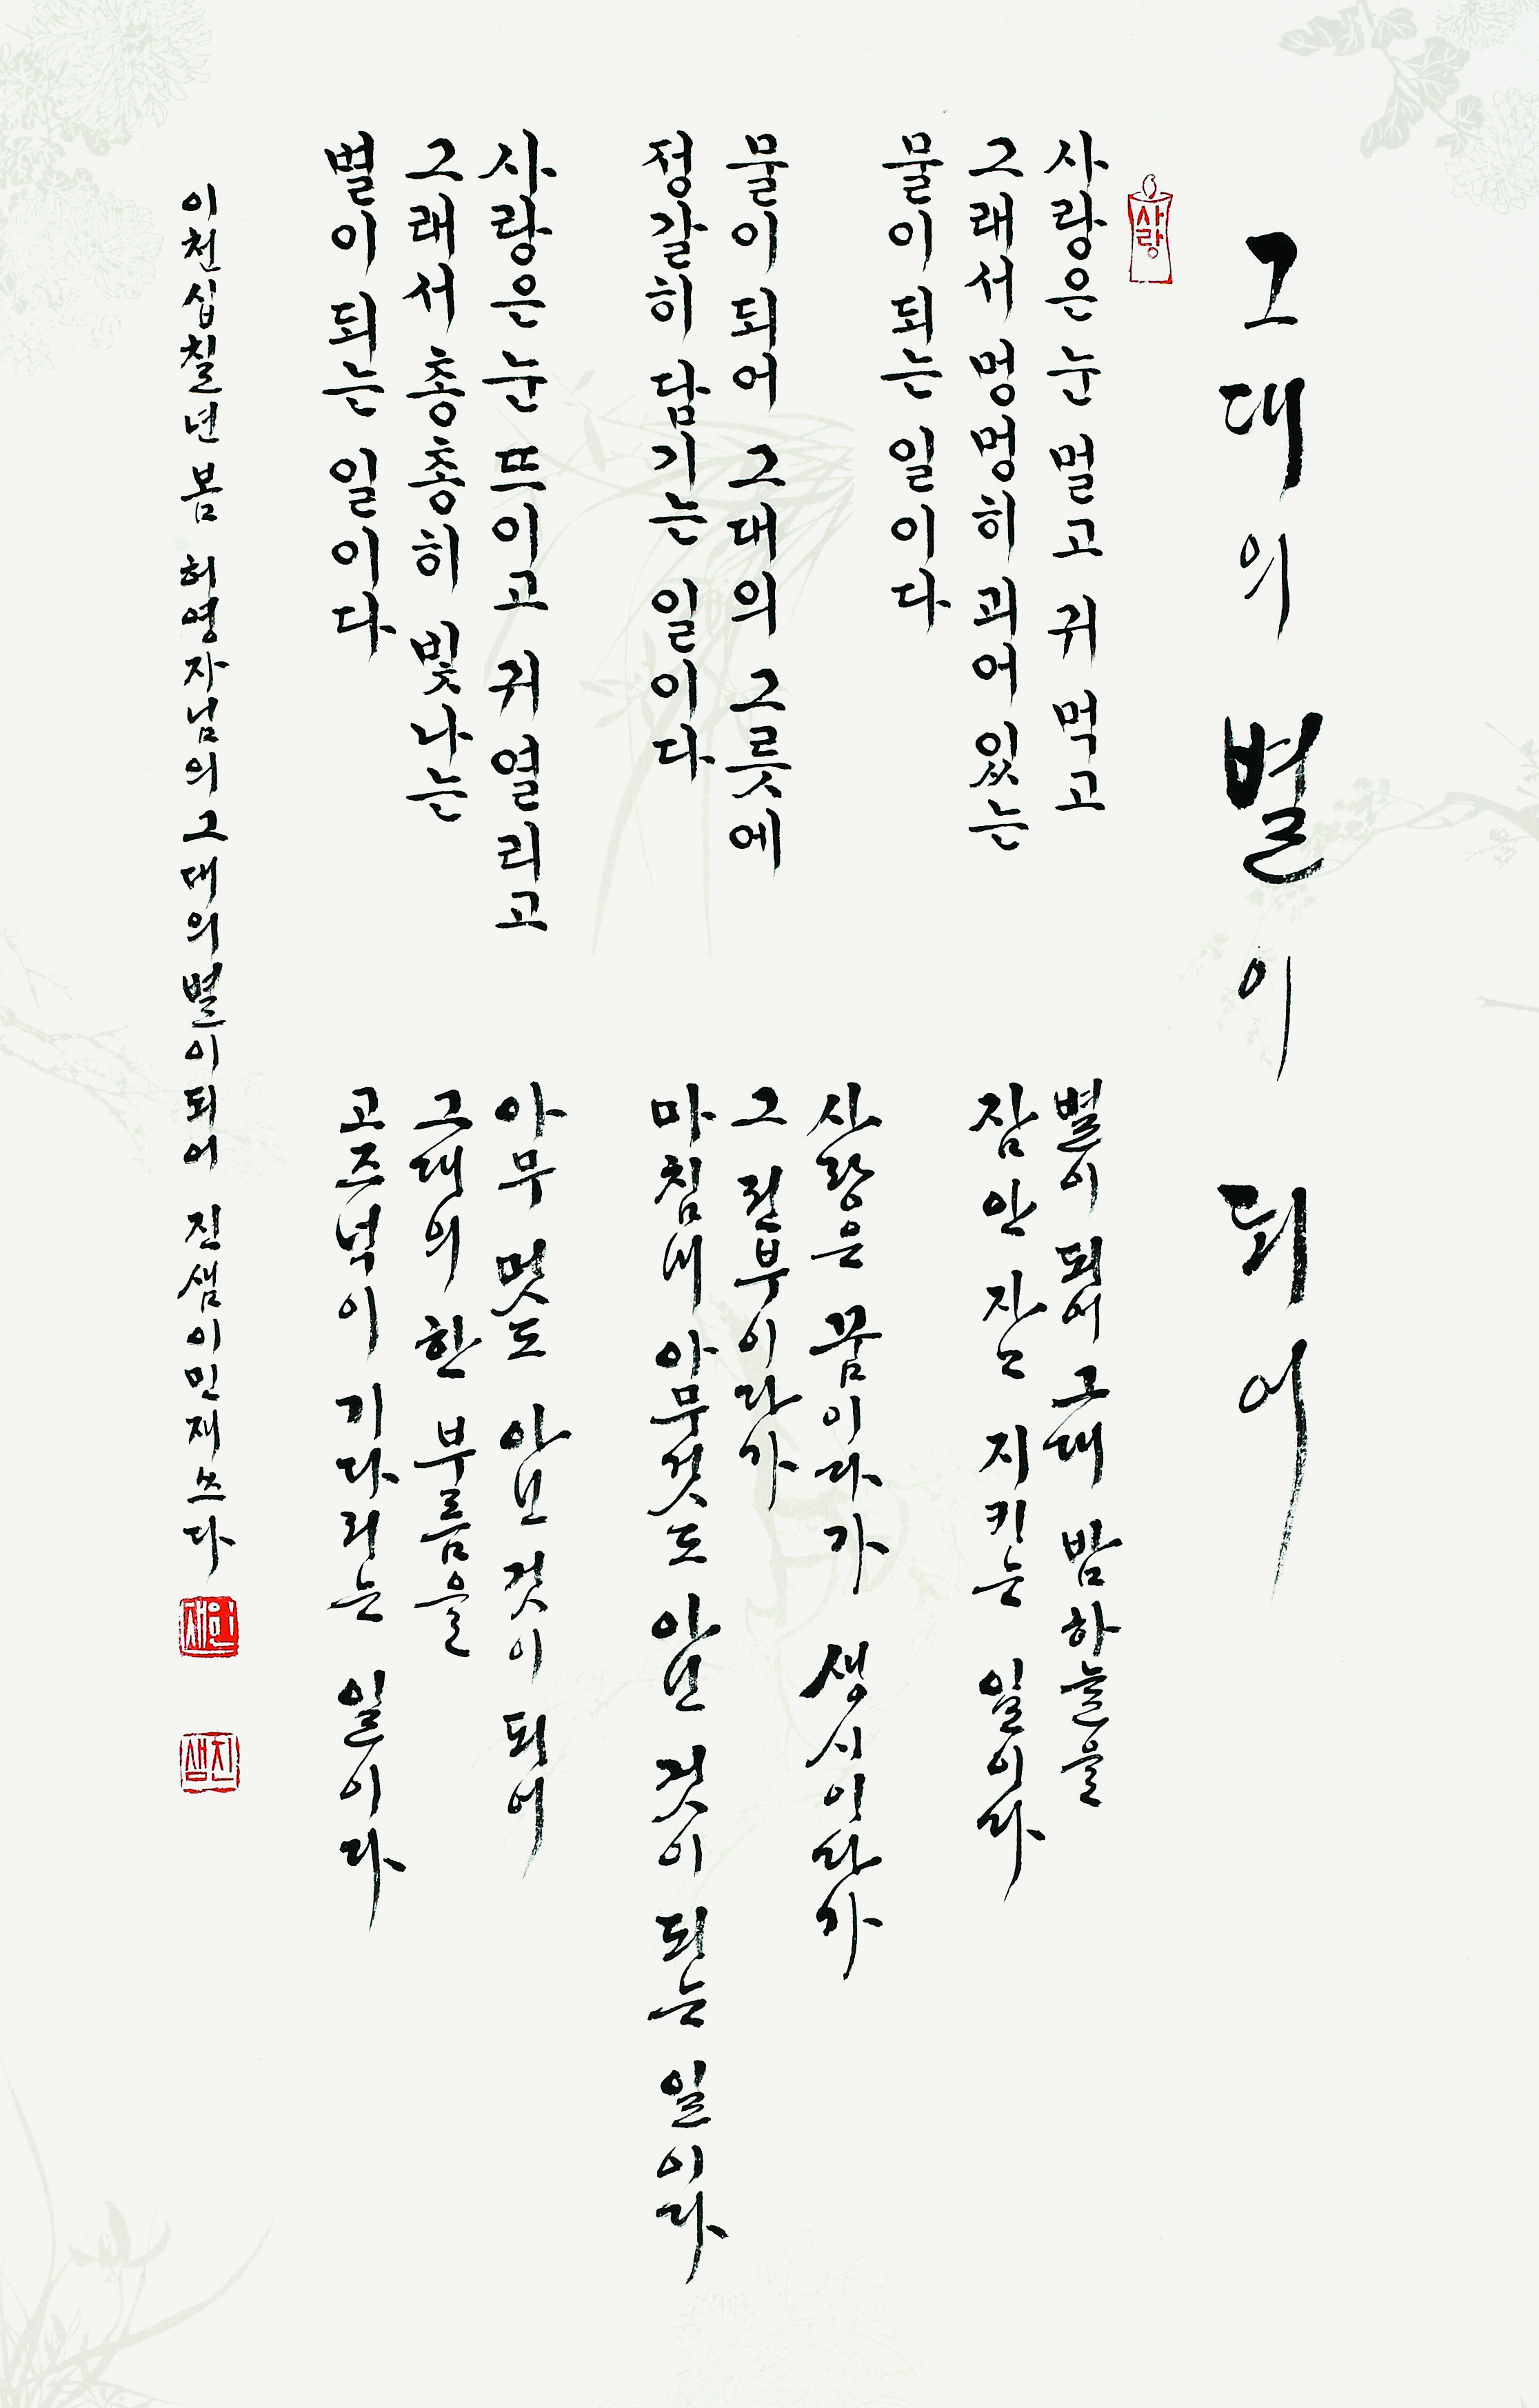 그대의 별이 되어
사랑
사랑은 눈 멀고 귀 먹고
그래서 멍멍히 괴어 있는
물이 되는 일이다
물이 되어 그대의 그릇에
정갈히 담기는 일이다
사랑은 눈 뜨이고 귀 열리고
그래서 총총히 빛나는
별이 되는 일이다
별이 되어 그대 밤하늘을
잠 안 자는 지키는 일이다
사랑은 꿈이다가 생시이다가
그 전부이다가
마침내 아무것도 아닌 것이 되는 일이다
아무 멋도 아닌 것이 되어
그대의 한 부름을
고즈넉이 기다리는 일이다
이천십칠년 봄 허영자님의 그대의 별이 되어 진샘 이민재 쓰다
민재
진샘